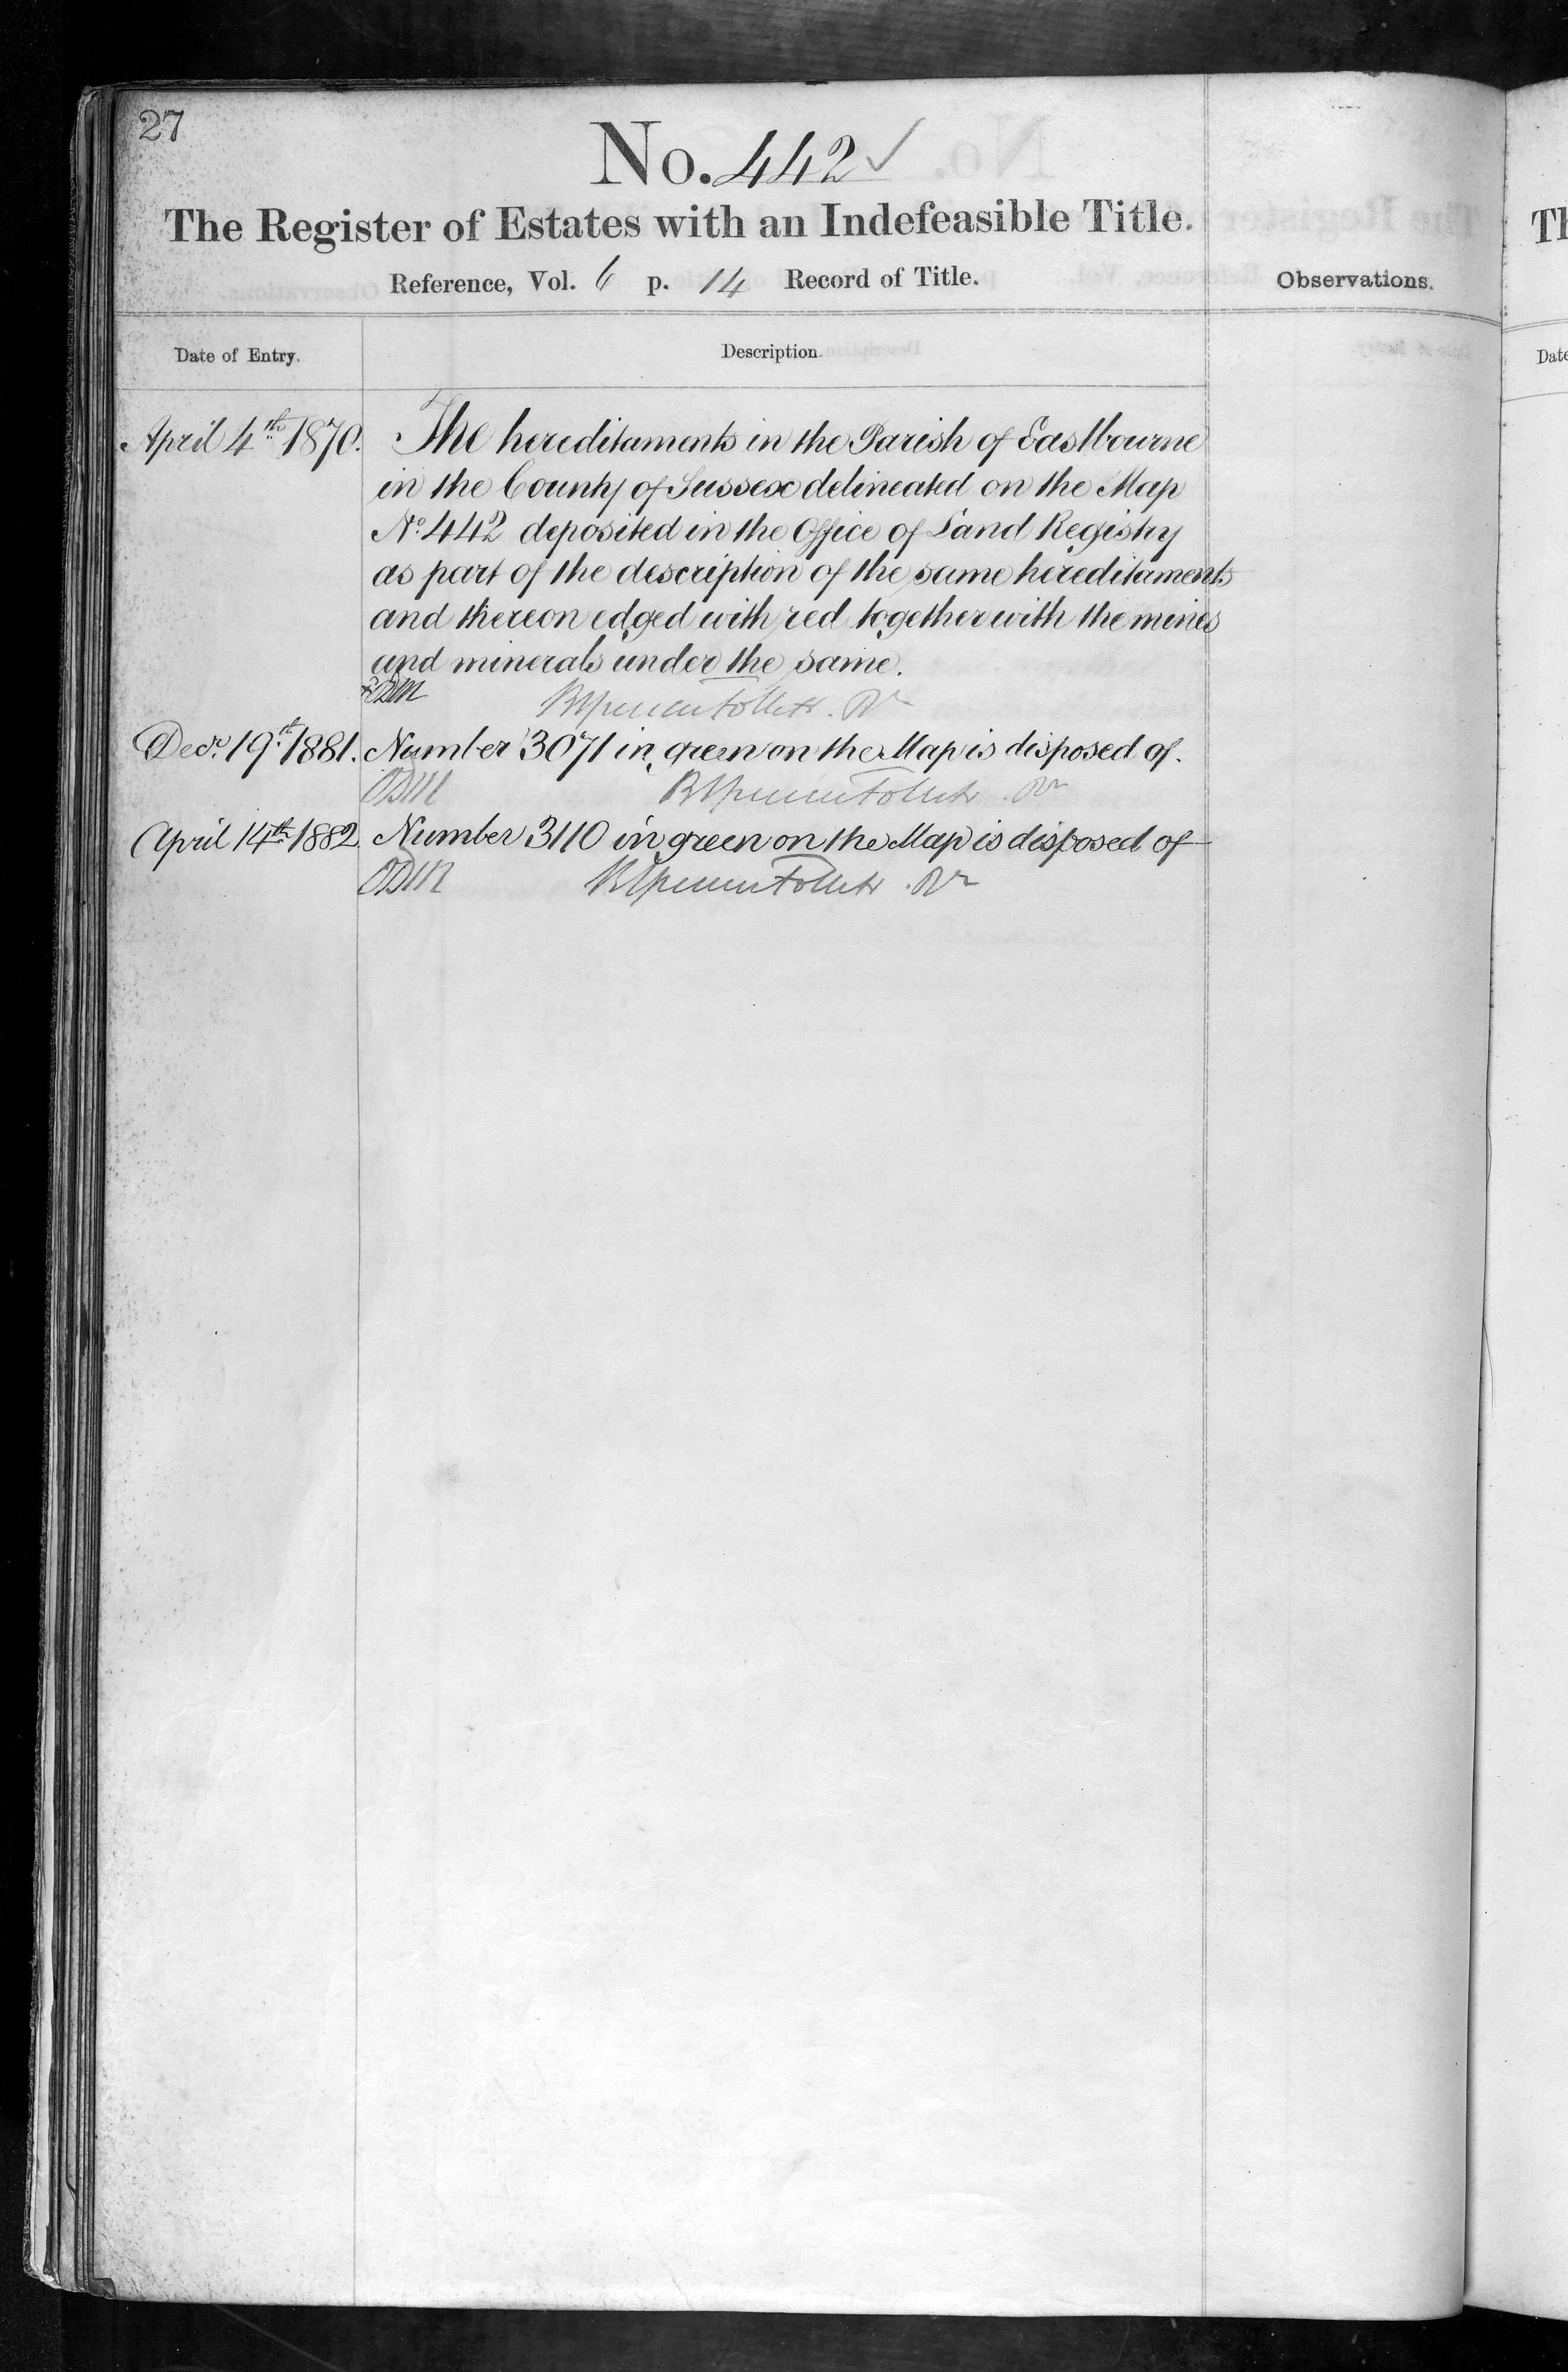 27
No. 442 ✓
The Register of Estates with an Indefeasible Title.
Reference, Vol. 6 p. 14 Record of Title.
Observations.
Date of Entry.
Description.
April 4th 1870. The hereditaments in the Parish of Eastbourne
in the County of Sussex delineated on the Map
No. 442 deposited in the Office of Land Registry
as part of the description of the same hereditaments
and thereon edged with red together with the mines
and minerals under the same.
Decr. 19th 1881. Number 3071 in green on the Map is disposed of.
April 14th 1882 Number 3110 in green on the Map is disposed of
Th
Date